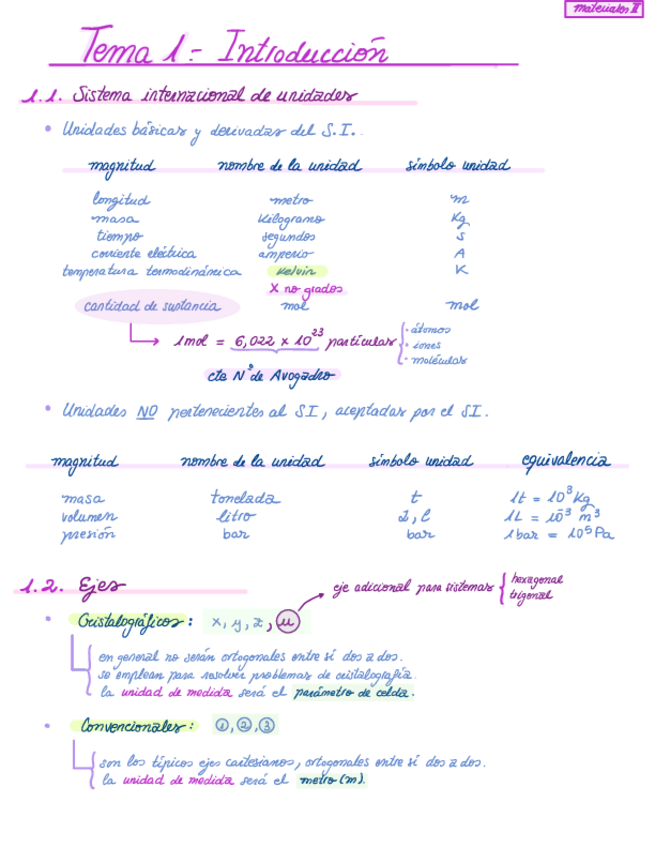 materiales II
Tema 1 - Introducción
1.1. Sistema internacional de unidades
• Unidades básicas y derivadas del S.I..
magnitud nombre de la unidad símbolo unidad
longitud metro m
masa Kilogramo Kg
tiempo segundos s
corriente eléctrica amperio A
temperatura termodinámica Kelvin K
X no grados
cantidad de sustancia mol mol
1mol = 6,022 x 10²³ partículas
• átomos
• iones
• moléculas
cte Nº de Avogadro
• Unidades NO pertenecientes al SI, aceptadas por el SI.
magnitud nombre de la unidad símbolo unidad equivalencia
masa tonelada t 1t = 10³ Kg
volumen litro L, l 1L = 10⁻³ m³
presión bar bar 1bar = 10⁵ Pa
1.2. Ejes
eje adicional para sistemas
hexagonal
trigonal
• Cristalográficos: x, y, z, u
en general no serán ortogonales entre sí dos a dos.
se emplean para resolver problemas de cristalografía.
la unidad de medida será el parámetro de celda.
• Convencionales: ①, ②, ③
son los típicos ejes cartesianos, ortogonales entre sí dos a dos.
la unidad de medida será el metro (m).